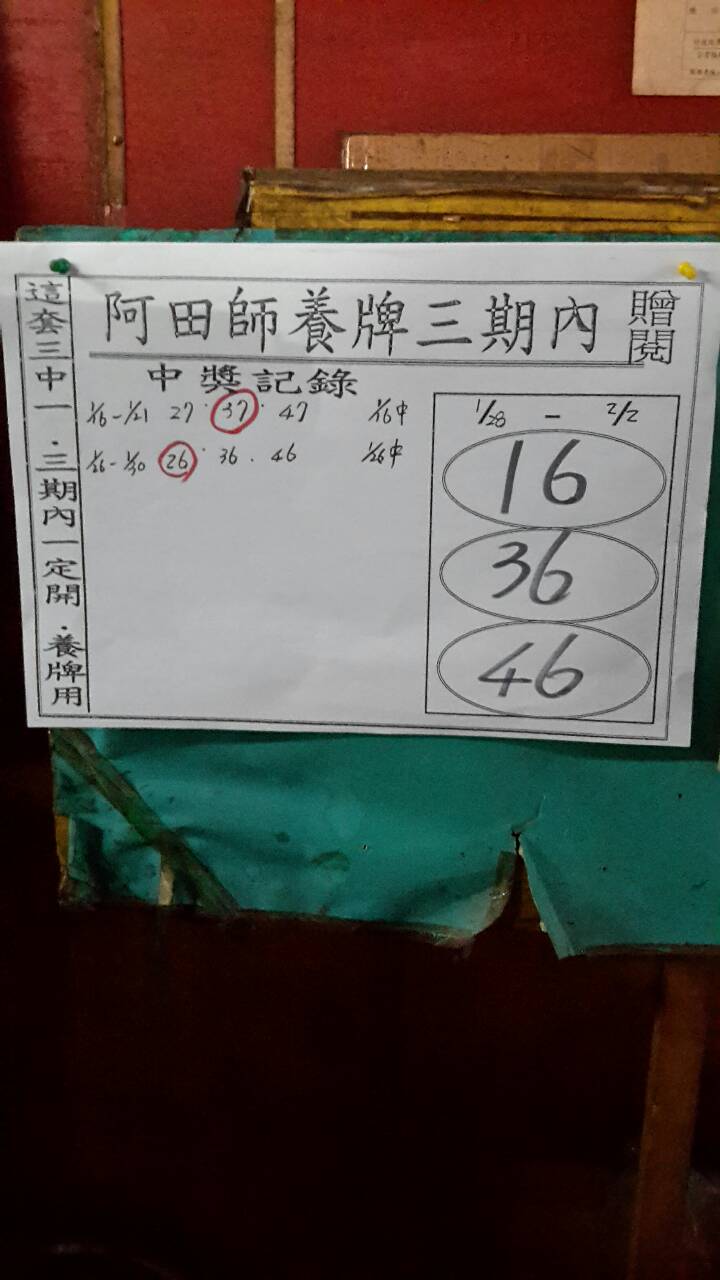 阿田師養牌三期內
贈閱
這套三中一．三期內一定開．養牌用
中獎記錄
1/16-1/21 27·37·47 1/16中
1/26-1/30 26·36·46 1/26中
1/28 - 2/2
16
36
46